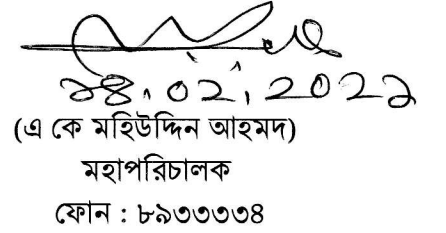 ২৪.০২.২০২১
(এ কে মহিউদ্দিন আহমদ)
মহাপরিচালক
ফোন : ৮৯৩৩৩৩৪